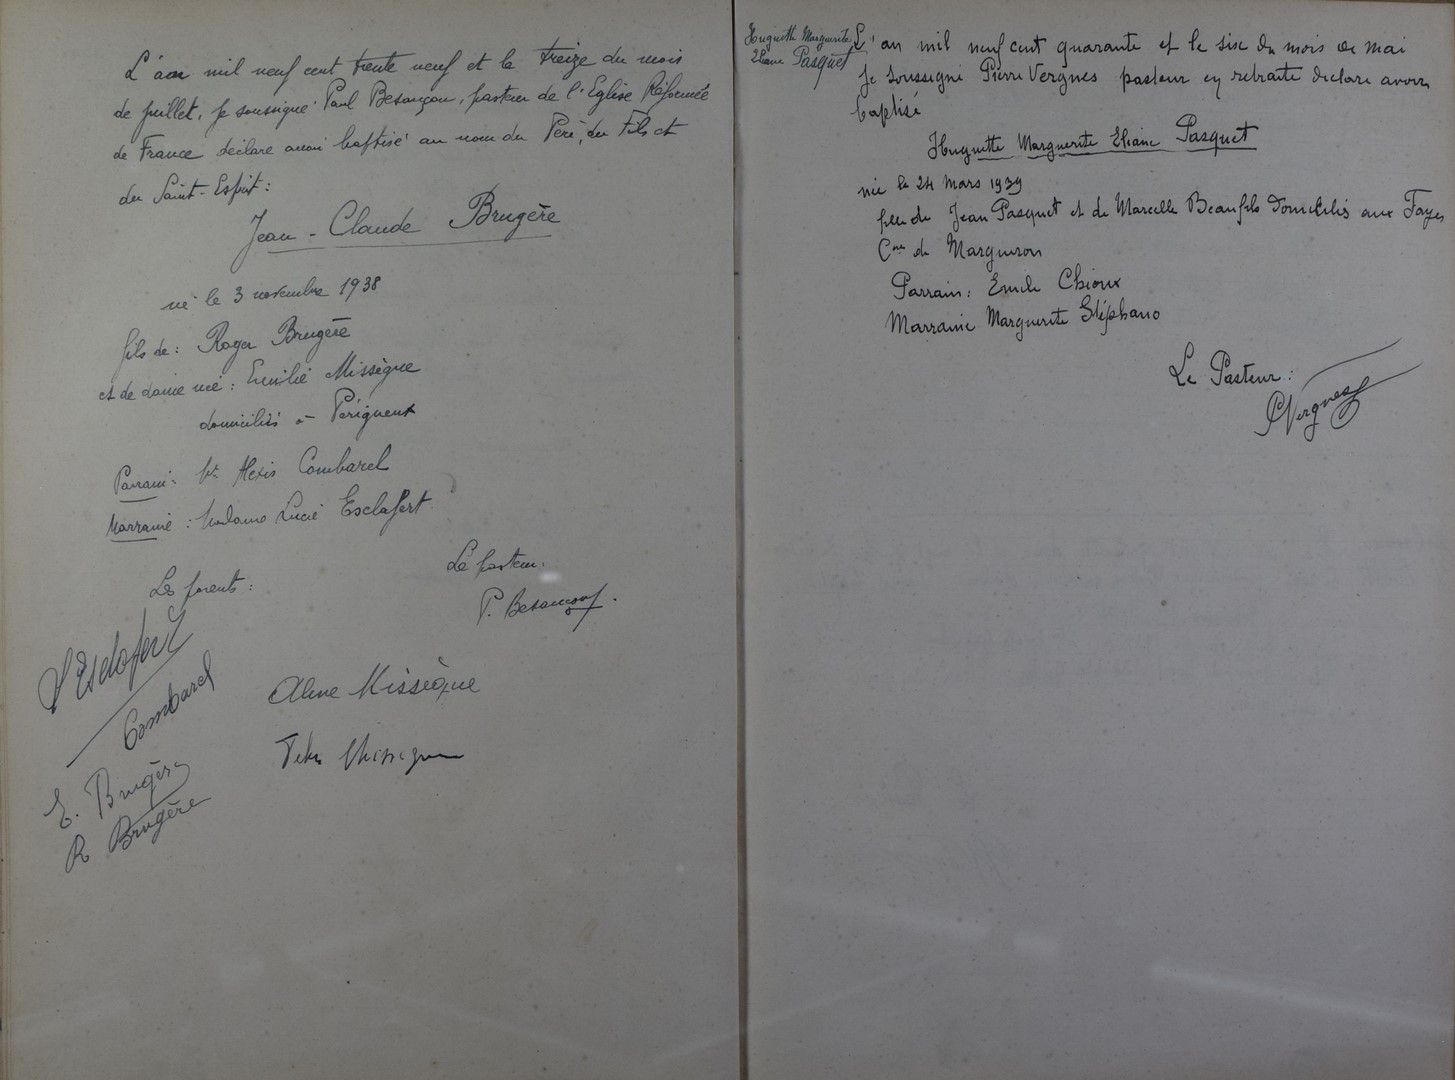 L'an mil neuf cent trente neuf et le treize du mois
de juillet, je soussigné Paul Besançon, pasteur de l'Eglise Réformée
de France déclare avoir baptisé au nom du Père, du Fils et
du Saint-Esprit:
Jean-Claude Brugère
né le 3 novembre 1938
fils de: Roger Brugère
et de dame née: Emilie Missègue
domiciliés à Périgueux
Parrain: Mr Alexis Combarel
Marraine: Madame Lucie Esclafert
Le pasteur.
Les parents:
P. Besançon.
Esclafert
Combarel
Aline Missègue
Missègue
E. Brugère
R Brugère
Huguette Marguerite
Eliane Pasquet
L'an mil neuf cent quarante et le six du mois de mai
Je soussigné Pierre Vergnes pasteur en retraite déclare avoir
baptisé
Huguette Marguerite Eliane Pasquet
née le 24 mars 1939
fille de Jean Pasquet et de Marcelle Beaufils domiciliés aux Fayes
Cne de
Parrain: Emile Chioux
Marraine Marguerite Stéphano
Le Pasteur:
P Vergnes